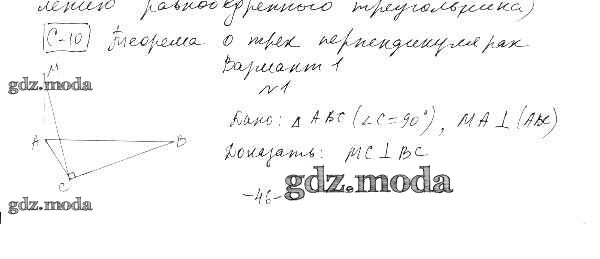 лению равнобедренного треугольника)
С-10 Теорема о трех перпендикулярах
Вариант 1
№1
M
gdz.moda
Дано: △ABC (∠C=90°), MA⊥(ABC)
A B
Доказать: MC⊥BC
C
-46-
gdz.moda
gdz.moda